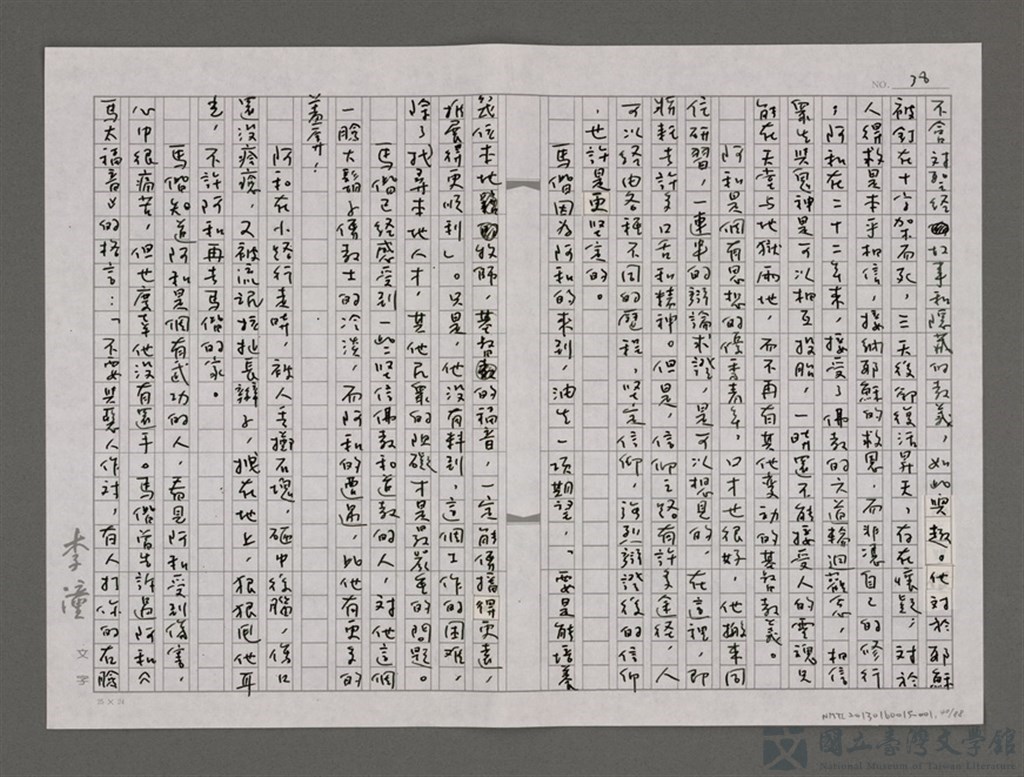 NO. 38
不含对聖經故事和隱藏的教義，如此興趣。他対於耶穌
被釘在十字架而死，三天後卻復活昇天，存在懷疑；対於
人得救是本乎相信，接納耶穌的救恩，而非憑自己的修行
；阿和在二十二年來，接受了佛教的六道輪迴觀念，相信
眾生與鬼神是可以相互投胎，一時還不能接受人的靈魂只
能在天堂与地獄兩地，而不再有其他变动的基督教義。
阿和是個有思想的優秀青年，口才也很好，他搬來同
住研習，一連串的辯論求證，是可以想見的，在這裡，即
將耗去許多口舌和精神。但是，信仰之路有許多途徑，人
可以経由各種不同的歷程，坚定信仰，強烈辯證後的信仰
，也許是更坚定的。
馬偕因為阿和的來到，油生一項期望，「要是能培養
幾位本地牧師，基督的福音，一定能傳播得更遠，
推展得更順利」。只是，他沒有料到，這個工作的困难，
除了找尋本地人才，其他民眾的阻礙才是最嚴重的問題。
馬偕已経感受到一些坚信佛教和道教的人，对他這個
一臉大鬍子傳教士的冷淡，而阿和的遭遇，比他有更多的
羞辱！
阿和在小徑行走時，被人丟擲石塊，砸中後腦，傷口
還沒痊癒，又被流氓拉扯長辮子，拽在地上，狠狠甩他耳
光，不許阿和再去馬偕的家。
馬偕知道阿和是個有武功的人，看見阿和受到傷害，
心中很痛苦，但也慶幸他沒有還手。馬偕曾告許過阿和
馬太福音》的格言：「不要與惡人作対，有人打你的右臉
李潼 文字
25 × 24
NMTL 20130160015-001, 40/88
國立臺灣文學館
National Museum of Taiwan Literature